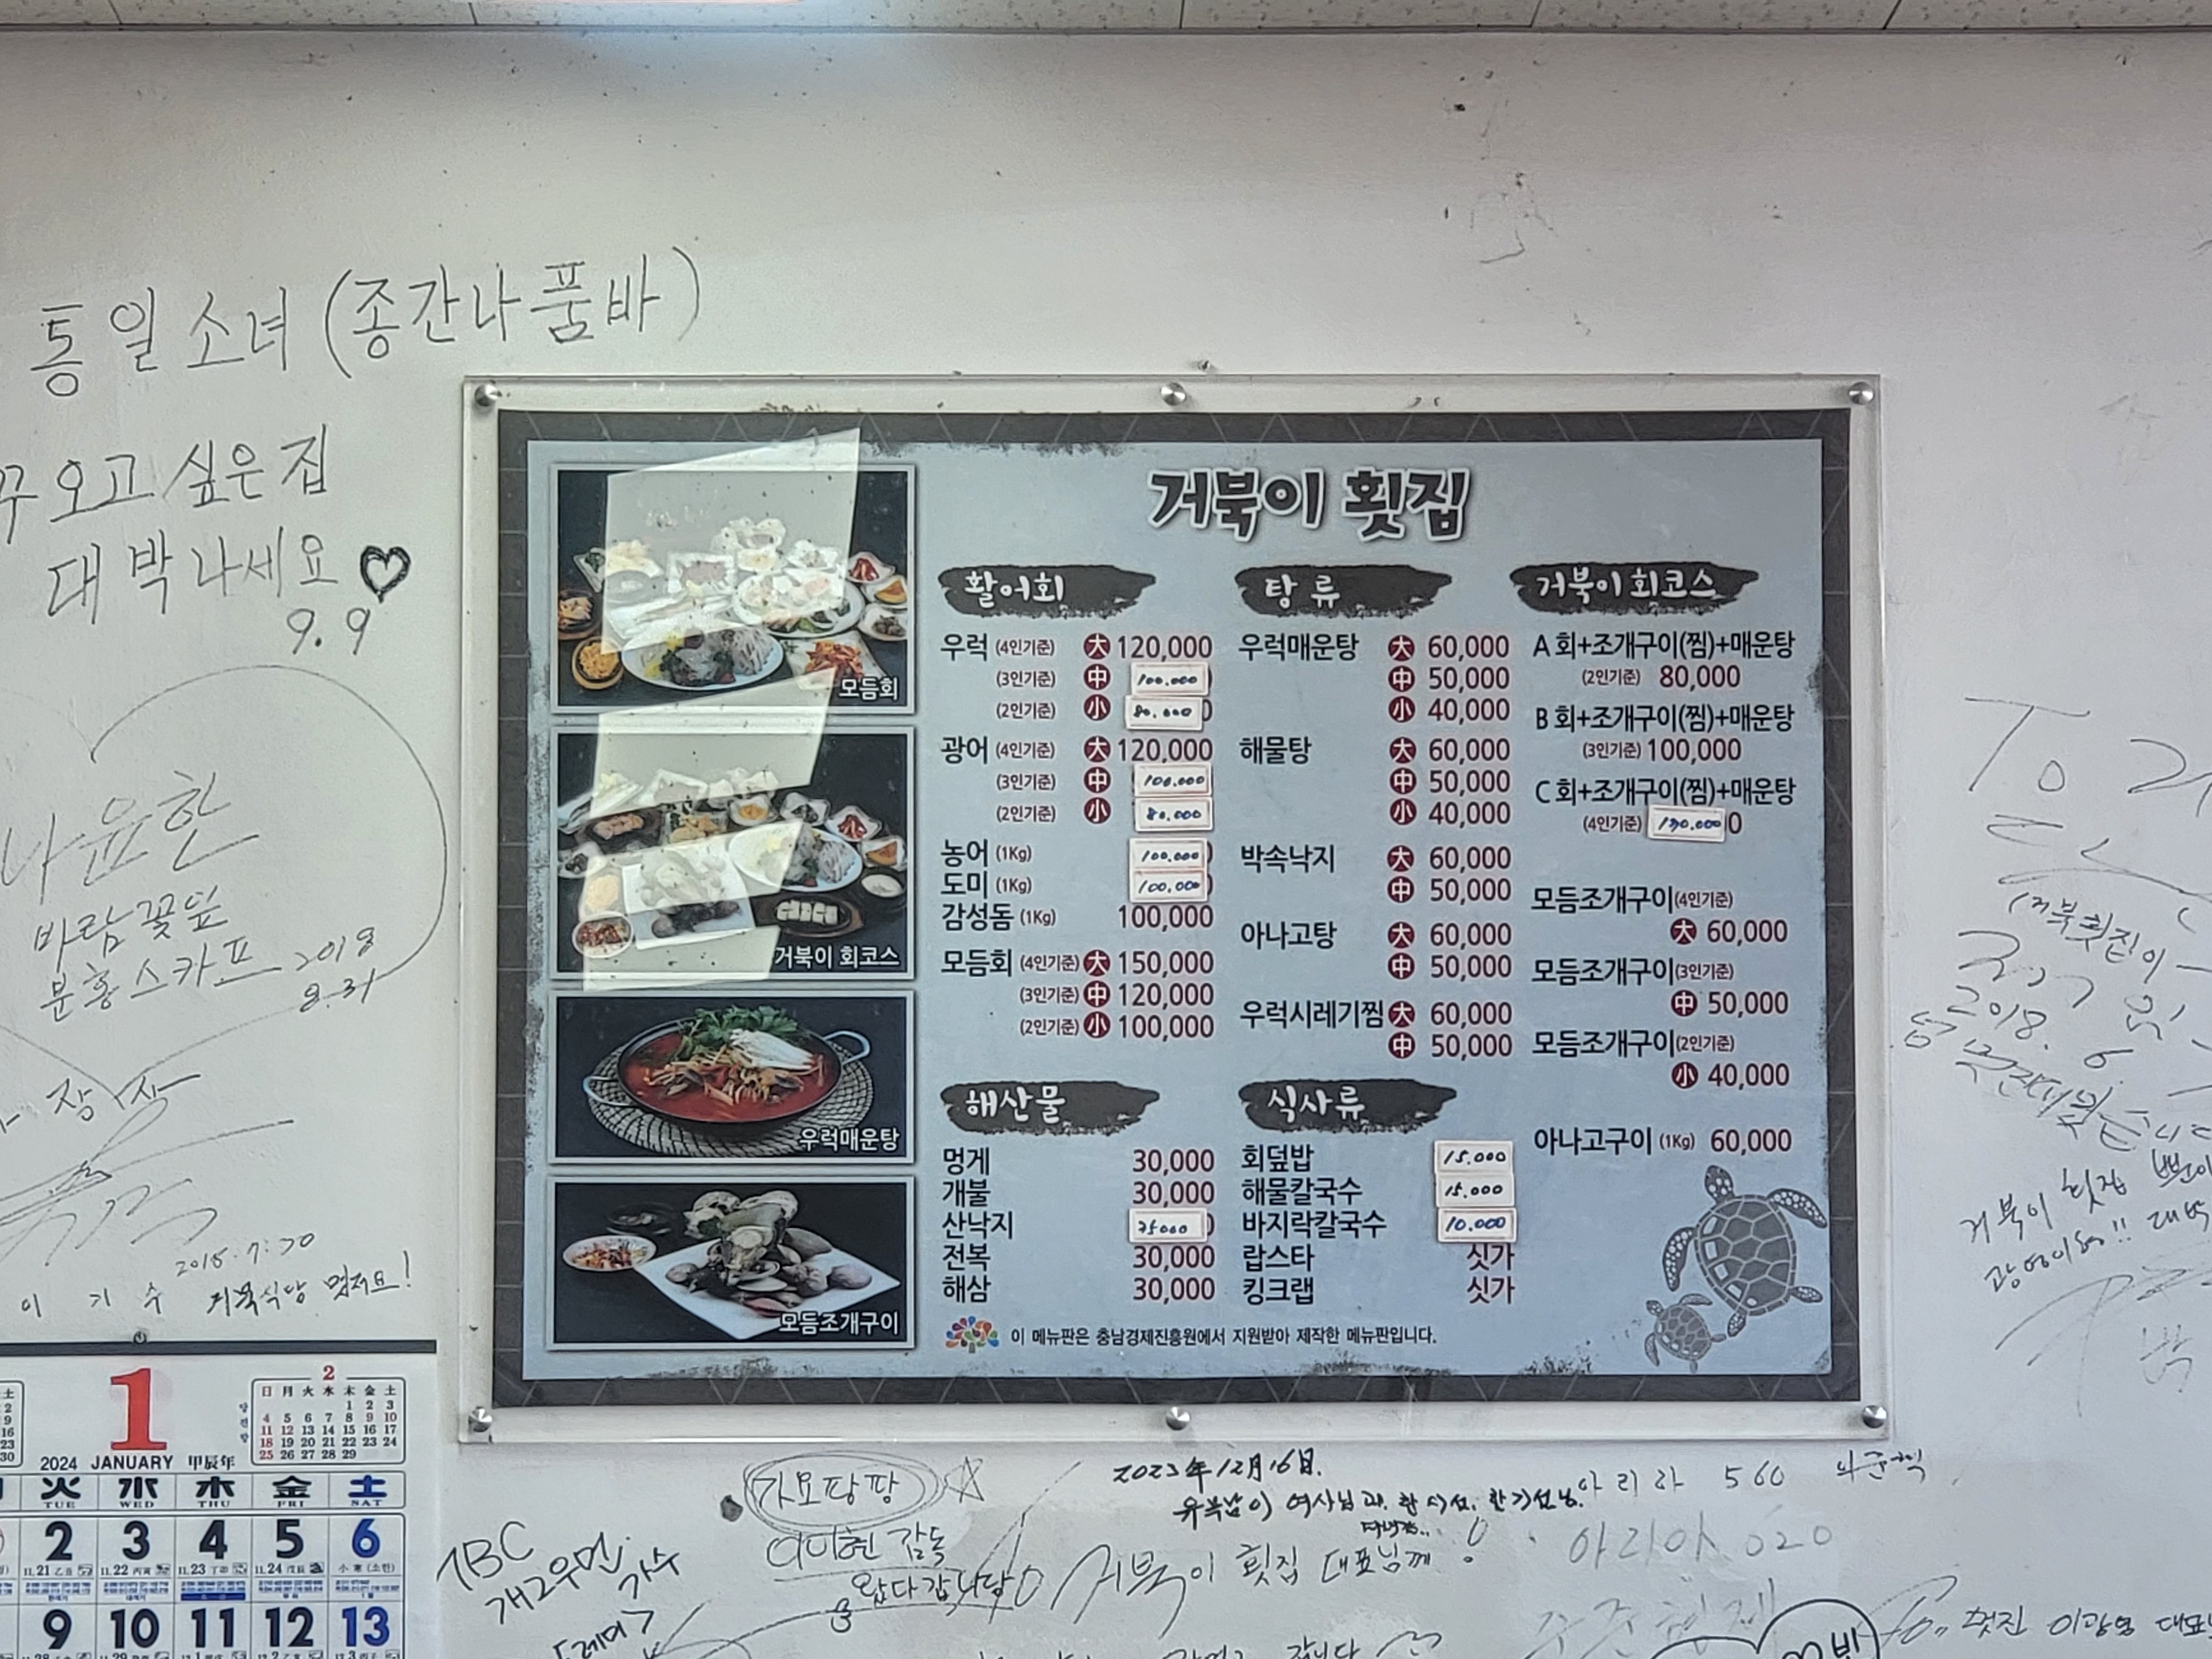 통일소녀 (종간나품바)
꾸 오고 싶은집
대박나세요 ♡
9.9
나윤한
바람꽃잎
분홍스카프 2018
8.31
2018.7.30
이기수 거북식당 멋져요!
거북이 횟집
활어회
우럭 (4인기준) 大 120,000
(3인기준) 中 100.000
(2인기준) 小 80.000
광어 (4인기준) 大 120,000
(3인기준) 中 100.000
(2인기준) 小 80.000
농어 (1Kg) 100.000
도미 (1Kg) 100.000
감성돔 (1Kg) 100,000
모듬회 (4인기준) 大 150,000
(3인기준) 中 120,000
(2인기준) 小 100,000
해산물
멍게 30,000
개불 30,000
산낙지 25000
전복 30,000
해삼 30,000
탕류
우럭매운탕 大 60,000
中 50,000
小 40,000
해물탕 大 60,000
中 50,000
小 40,000
박속낙지 大 60,000
中 50,000
아나고탕 大 60,000
中 50,000
우럭시레기찜 大 60,000
中 50,000
식사류
회덮밥 15.000
해물칼국수 15.000
바지락칼국수 10.000
랍스타 싯가
킹크랩 싯가
거북이 회코스
A 회+조개구이(찜)+매운탕
(2인기준) 80,000
B 회+조개구이(찜)+매운탕
(3인기준) 100,000
C 회+조개구이(찜)+매운탕
(4인기준) 130.000
모듬조개구이(4인기준)
大 60,000
모듬조개구이(3인기준)
中 50,000
모듬조개구이(2인기준)
小 40,000
아나고구이 (1Kg) 60,000
이 메뉴판은 충남경제진흥원에서 지원받아 제작한 메뉴판입니다.
모듬회
거북이 회코스
우럭매운탕
모듬조개구이
거북이 횟집
2018. 6
1
2024 JANUARY 甲辰年
2
日 月 火 水 木 金 土
1 2 3
4 5 6 7 8 9 10
11 12 13 14 15 16 17
18 19 20 21 22 23 24
25 26 27 28 29
火 水 木 金 土
TUE WED THU FRI SAT
2 3 4 5 6
9 10 11 12 13
2023年12月16日.
아리아 560
TBC
개그우먼
가수
왔다갑니당
거북이 횟집 대표님께
아리아 020
To. 멋진 이광영